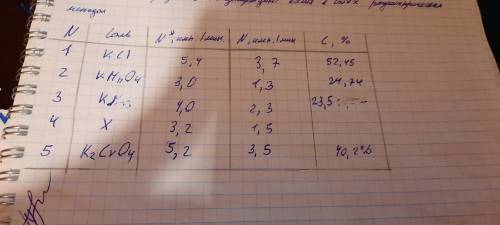 методом
N Соль N*, имп. / мин. N, имп. / мин C, %
1 KCl 5,4 3,7 52,45
2 KMnO4 3,0 1,3 24,74
3 4,0 2,3 23,5
4 X 3,2 1,5
5 K2CrO4 5,2 3,5 40,2